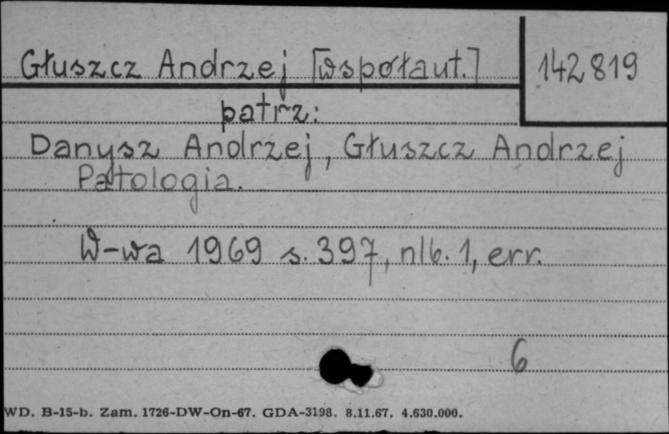 Głuszcz Andrzej [współaut.]
142819
patrz:
Danysz Andrzej, Głuszcz Andrzej
Patologia.
W-wa 1969 s. 397, nlb. 1, err.
6
WD. B-15-b. Zam. 1726-DW-On-67. GDA-3198. 8.11.67. 4.630.000.